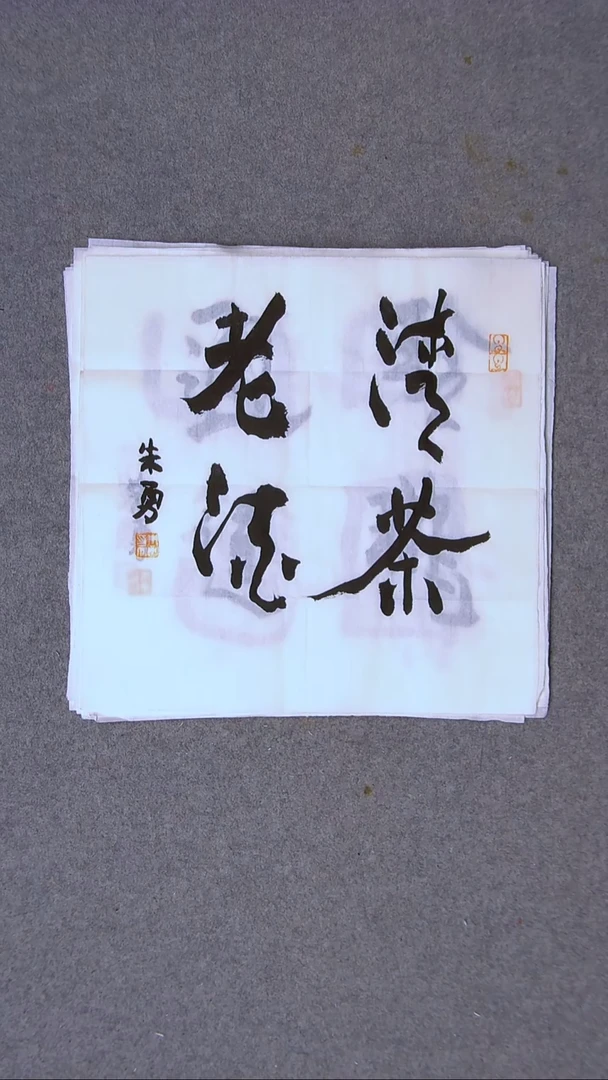 清茶
老酒
朱勇